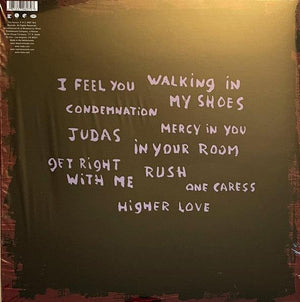 I FEEL YOU
WALKING IN
MY SHOES
CONDEMNATION
MERCY IN YOU
JUDAS
IN YOUR ROOM
GET RIGHT
WITH ME
RUSH
ONE CARESS
HIGHER LOVE